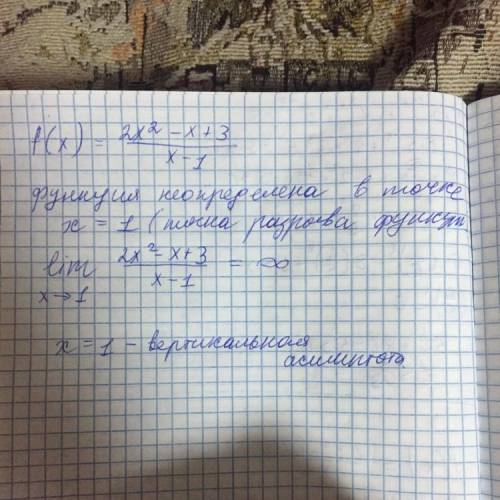 f(x) = (2x² - x + 3)/(x - 1)
функция неопределена в точке
x = 1 (точка разрыва функции
lim x→1 (2x² - x + 3)/(x - 1) = ∞
x = 1 - вертикальная
асимптота